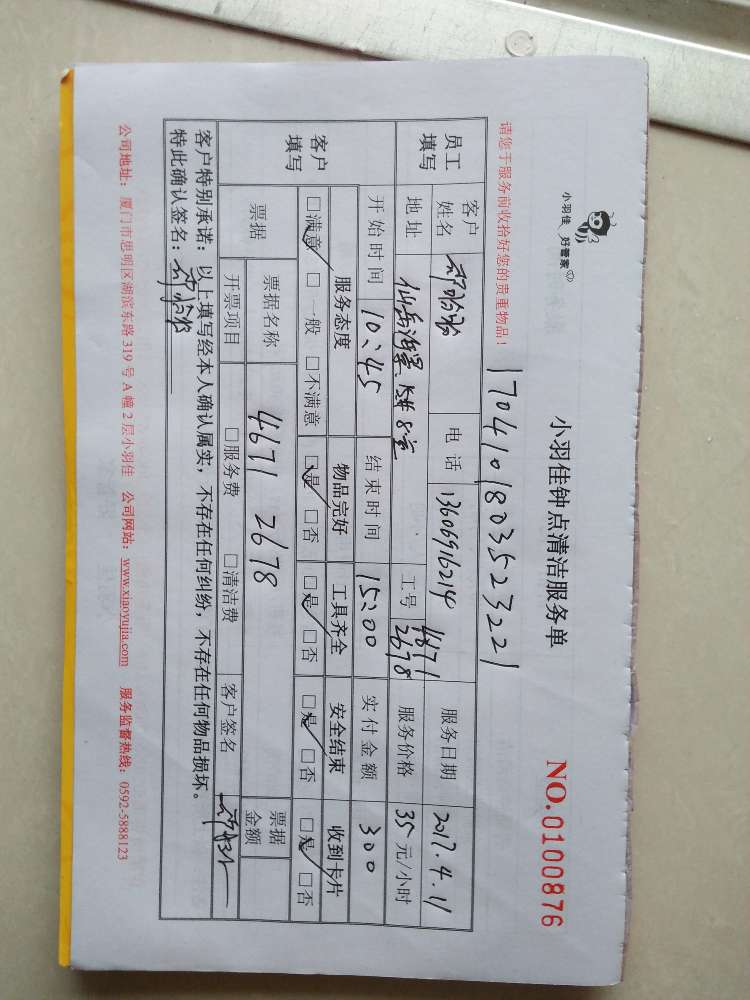 小羽佳 好管家
小羽佳钟点清洁服务单
NO.0100876
请您于服务前收拾好您的贵重物品!
1704101803523221
员工填写 客户姓名 电话 13606916214 服务日期 2017.4.11
地址 仙岳 8室 工号 4671 2678 服务价格 35 元/小时
开始时间 10:45 结束时间 15:00 实付金额 300
客户填写 服务态度 物品完好 工具齐全 安全结束 收到卡片
□满意 □一般 □不满意 □是 □否 □是 □否 □是 □否 □是 □否
票据 票据名称 4671 2678 票据金额
开票项目 □服务费 □清洁费 客户签名
客户特别承诺:以上填写经本人确认属实,不存在任何纠纷,不存在任何物品损坏。
特此确认签名:
公司地址:厦门市思明区湖滨东路319号A幢2层小羽佳 公司网站:www.xiaoyujia.com 服务监督热线:0592-5888123